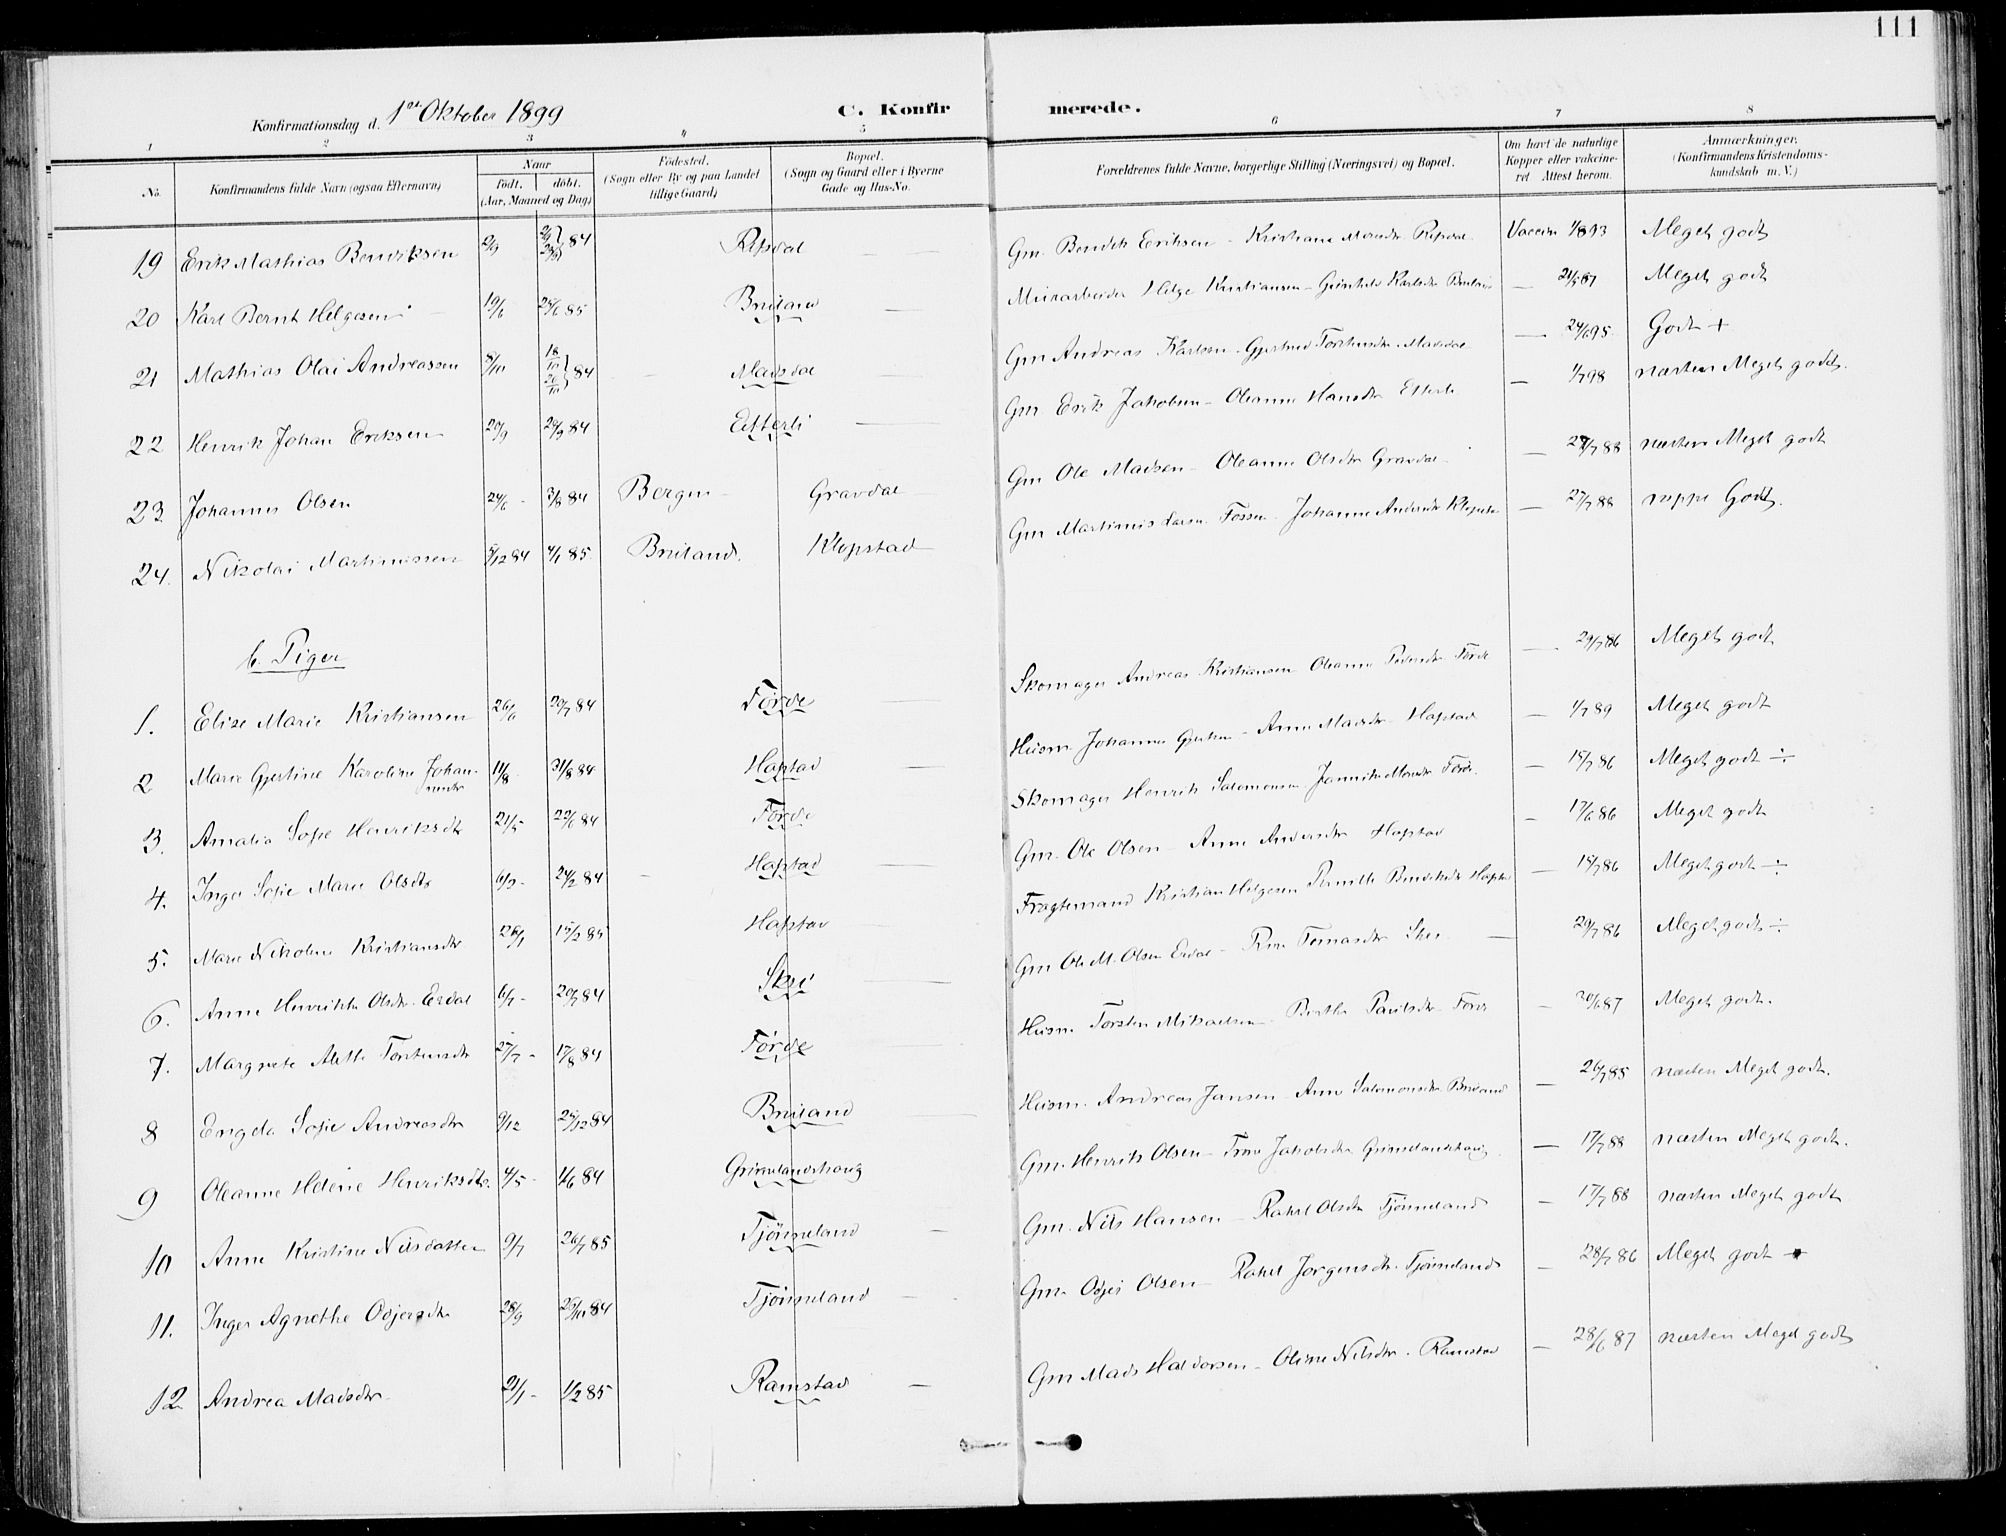 111
Konfirmationsdag d. 1ste Oktober 1899 C. Konfirmerede.
1 2 3 4 5 6 7 8
No. Konfirmandens fulde Navn (ogsaa Efternavn) Naar født. døbt. (Aar, Maaned og Dag) Fødested. (Sogn eller By og paa Landet tillige Gaard) Bopæl. (Sogn og Gaard eller i Byerne Gade og Hus-No. Forældrenes fulde Navne, borgerlige Stilling (Næringsvei) og Bopæl. Om havt de naturlige Kopper eller vaccineret Attest herom. Anmærkninger. (Konfirmandens Kristendomskundskab m. V.)
19 Erik Mathias Bendiksen 2/9 84 Repdal Gm. Bendik Eriksen - Kristiane Monsdtr Repdal Vaccin 1/8 93 Meget godt
20 Karl Bernt Helgesen 19/6 28/6 85 Bruland Murarbeider Helge Kristiansen - Gunhild Karlsdtr Bruland — 21/5 87 Meget godt
21 Mathias Olai Andreassen 8/10 18/10 20/10 84 Madsdal Gm Andreas Karlsen - Gjertrud Torstensdtr. Madsdal — 24/6 95 Godt +
22 Henrik Johan Eriksen 20/9 29/9 84 Etterli Gm Erik Jakobsen - Oleanna Hansdtr Etterli — 1/7 98 næsten Meget godt.
23 Johannes Olsen 24/6 - 3/8 84 Bergen - Gravdal Gm Ole Madsen - Oleanne Olsdtr Gravdal — 28/7 88 næsten Meget godt
24. Nikolai Martinussen 5/12 84 4/1 85. Bruland. Klopstad Gm Martinus Larsen Fossen - Johanne Andersdtr Klopstad — 27/7 88 neppe Godt.
b. Piger
1. Elise Marie Kristiansen 26/6 20/7 84 Førde Skomager Andreas Kristiansen Oleanne Pedersdtr Førde — 29/7 86 Meget godt
2 Marie Gjertine Karoline Johannesdtr 11/8 31/8 84 Hafstad Husm. Johannes Gjertsen - Anne Madsdtr - Hafstad — 1/7 89 Meget godt
3. Amalia Sofie Henriksdtr 21/5 22/6 84 Førde Skomager Henrik Salomonsen Jannike Monsdtr Førde. — 15/7 86 Meget godt ÷
4. Inga Sofie Marie Olsdtr 6/2 - 24/2 84 Hafstad Gm. Ole Olsen - Anne Andersdtr Hafstad - 17/6 86 Meget godt
5. Marie Nikoline Kristiansdtr 26/1 15/2 85 Hafstad Fragtemand Kristian Helgesen Pernille Bendiksdtr Hafstad — 15/7 86 Meget godt ÷
6. Anne Henrikke Olsdtr. Erdal 6/7 - 20/7 84 Skei Gm Ole M. Olsen Erdal - Tomasdtr Skei — 29/7 86 Meget godt ÷
7. Margrete Alette Torstensdtr 27/7 - 17/8 84 Førde Husm Torsten Mikaelsen - Berthe Paulsdtr Førde — 30/6 87 Meget godt.
8 Engda Sofie Andreasdtr 9/12 25/12 84 Bruland Husm. Andreas Jansen - Anne Salomonsdtr Bruland — 26/7 85 næsten Meget godt.
9 Oleanne Helene Henriksdtr. 4/5 - 1/6 84 Grimelandshaug Gm. Henrik Olsen - Jakobsdtr Grimelandshaug — 17/7 88 næsten Meget godt.
10 Anne Kristine Nilsdatter 9/7 26/7 85 Tjønneland Gm. Nils Hansen - Rakel Olsdtr Tjønneland — 17/7 88 næsten Meget godt
11. Inger Agnethe Odjersdtr 28/9 25/10 84 Tjønneland Gm. Odjer Olsen - Rakel Jørgensdtr. Tjønneland — 28/7 86 Meget godt +
12 Andrea Madsdtr 21/1 - 1/2 85 Ramstad Gm Mads Haldorsen - Oline Nilsdtr. Ramstad — 28/6 87 næsten Meget godt